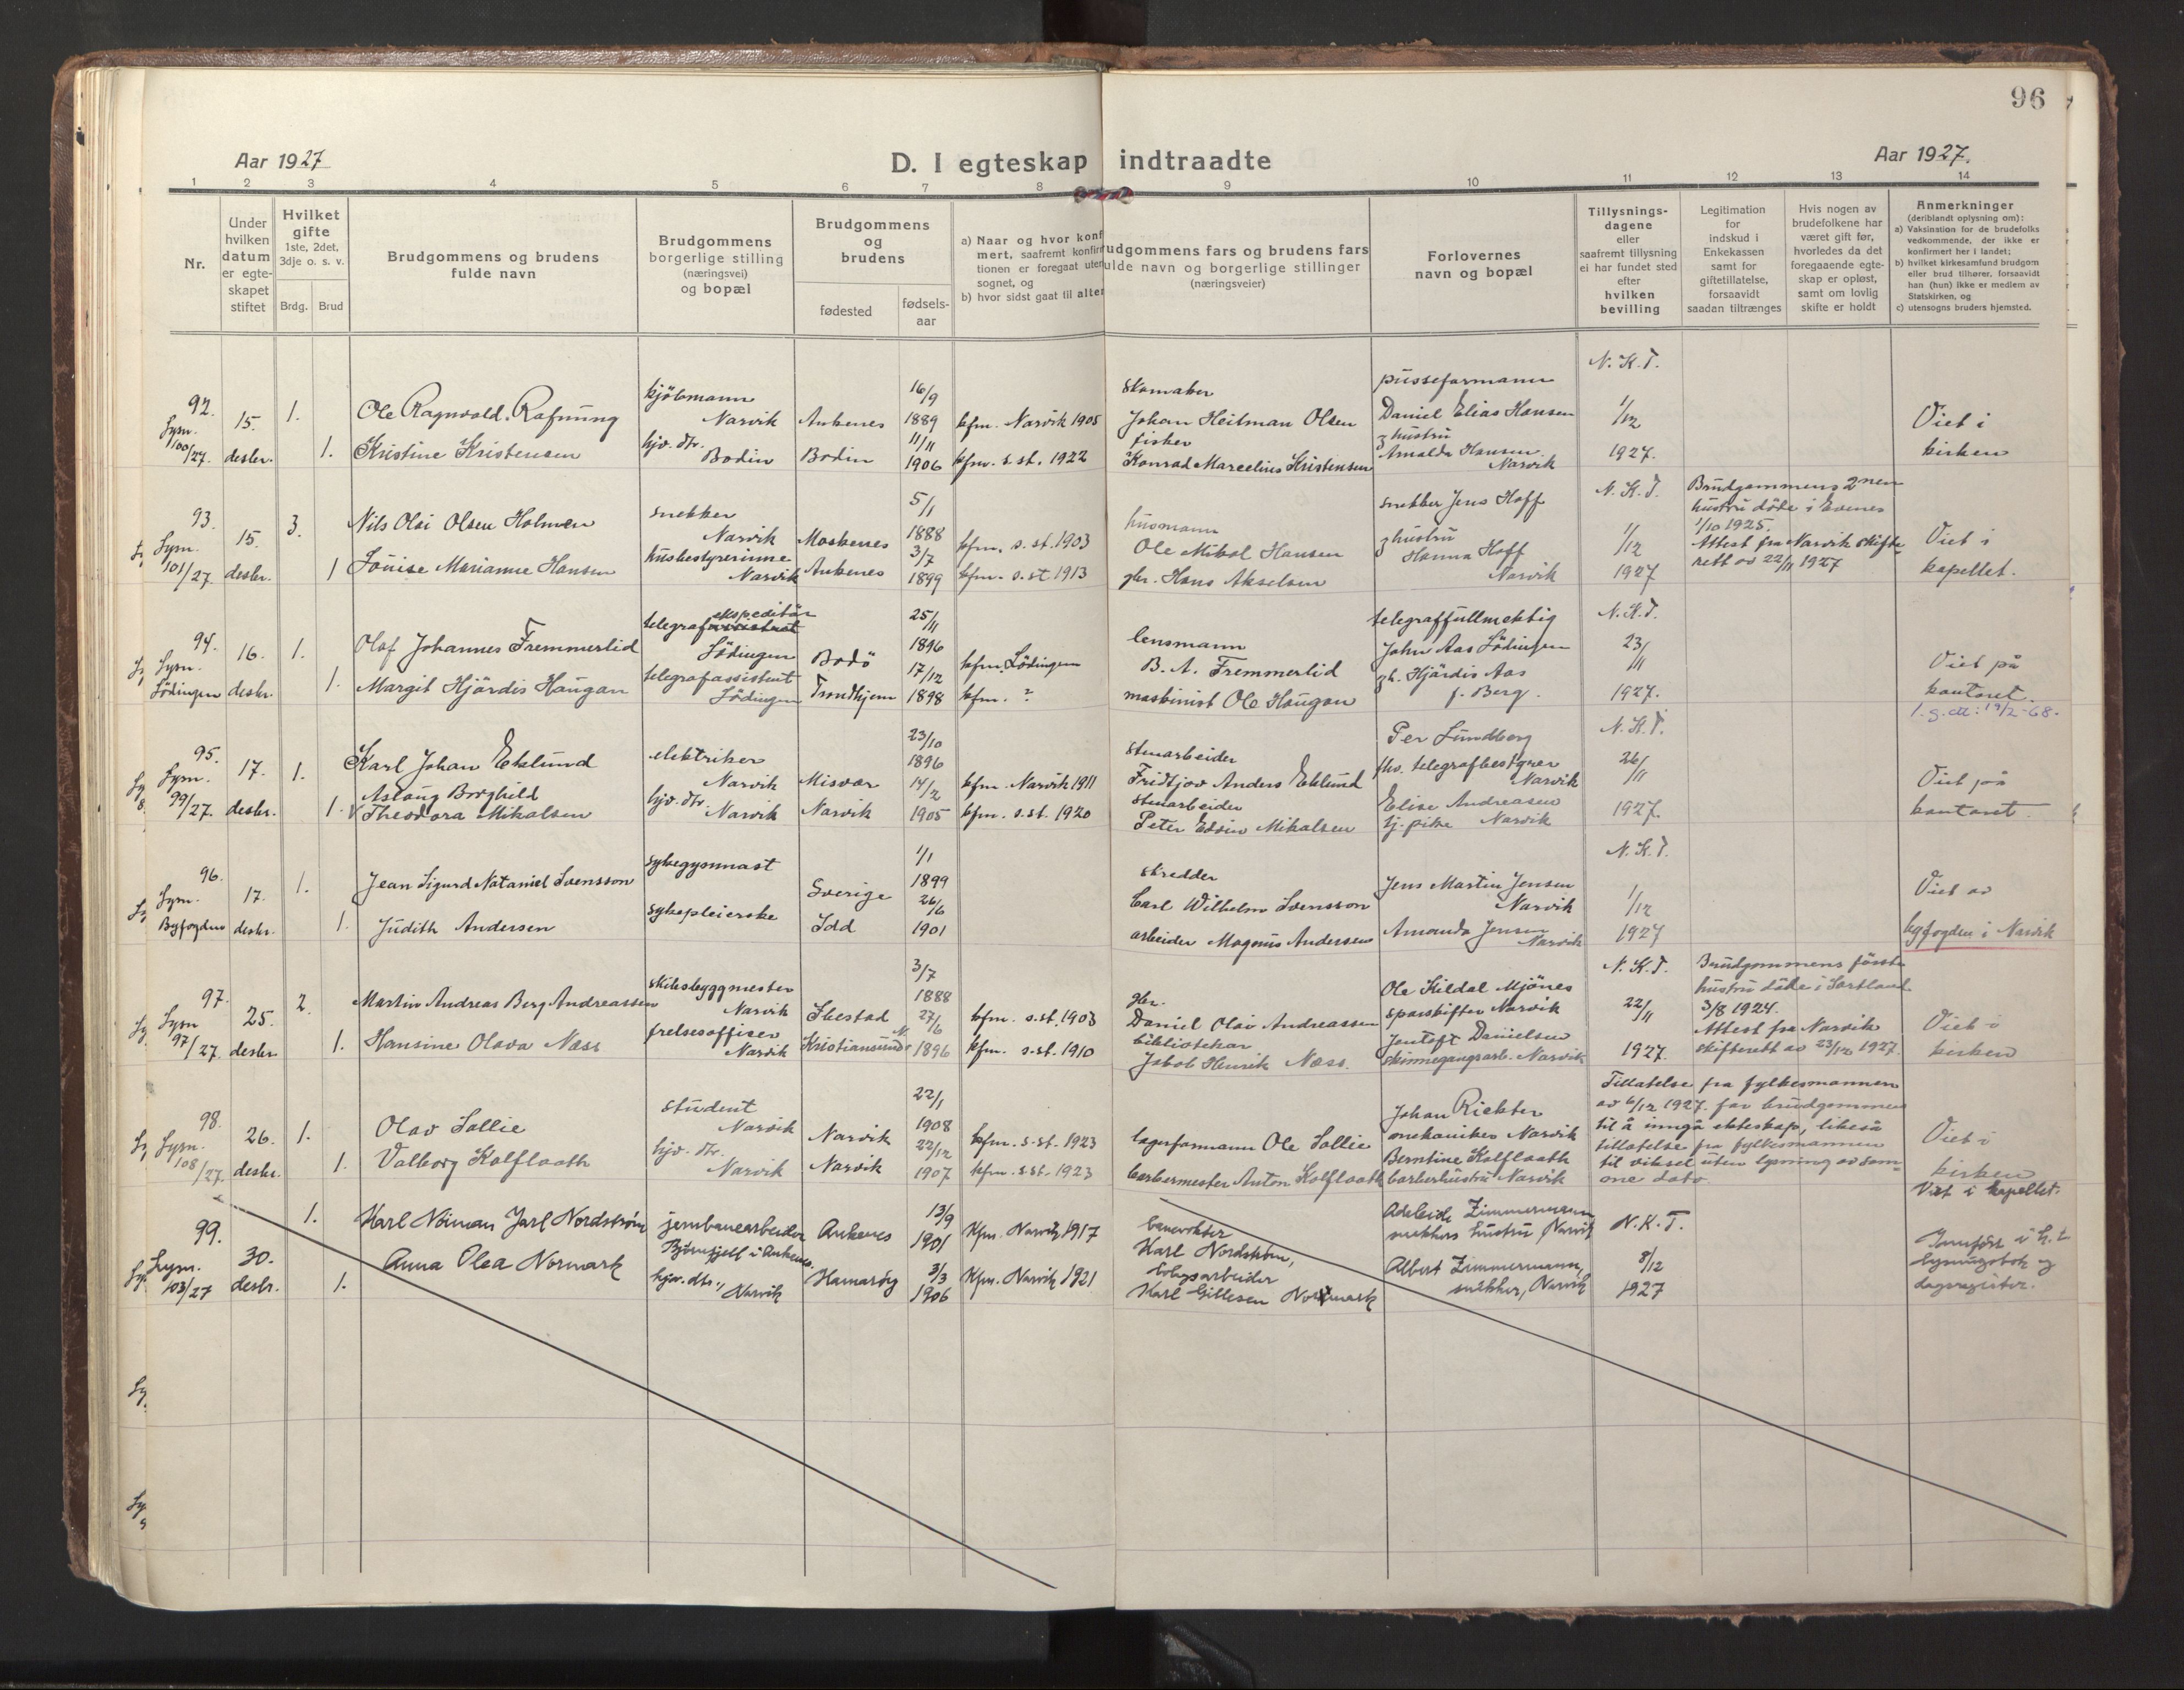 96
Aar 1927
D. I egteskap indtraadte
Aar 1927.
1 2 3 4 5 6 7 8 9 10 11 12 13 14
Nr.
Under hvilken datum er egte-skapet stiftet
Hvilket gifte
1ste, 2det, 3dje o. s. v.
Brdg. Brud
Brudgommens og brudens fulde navn
Brudgommens borgerlige stilling (næringsvei) og bopæl
Brudgommens og brudens
fødested
fødsels-aar
a) Naar og hvor konf
mert, saafremt konfir
tionen er foregaat uten
sognet, og
b) hvor sidst gaat til alter
udgommens fars og brudens fars
ulde navn og borgerlige stillinger
(næringsveier)
Forlovernes navn og bopæl
Tillysnings-dagene eller saafremt tillysning ei har fundet sted efter hvilken bevilling
Legitimation for indskud i Enkekassen samt for giftetillatelse, forsaavidt saadan tiltrænges
Hvis nogen av brudefolkene har været gift før, hvorledes da det foregaaende egte-skap er opløst, samt om lovlig skifte er holdt
Anmerkninger
(deriblandt oplysning om):
a) Vaksination for de brudefolks vedkommende, der ikke er konfirmert her i landet;
b) hvilket kirkesamfund brudgom eller brud tilhører, forsaavidt han (hun) ikke er medlem av Statskirken, og
c) utensogns bruders hjemsted.
92. Lysn. 100/27. 15. desbr. 1. 1.
Ole Ragnvald Rafnung
Kristine Kristensen
kjöbmann Narvik
hjv. dtr. Bodin
Ankenes 16/9 1889 kfm. Narvik 1905
Bodin 11/11 1906 kfm. s. st. 1922
skomaker
Johan Heitman Olsen
fisker
Konrad Marcelius Kristensen
pusseformann
Daniel Elias Hansen
g hustru
Arnalda Hansen
Narvik
N. K. T.
1/12
1927.
Viet i
kirken
93. Lysn. 101/27. 15. desbr. 3. 1
Nils Olai Olsen Holmen
Louise Marianne Hansen
snekker
Narvik
husbestyrerinne
Narvik
Moskenes 5/1 1888 kfm. s. st. 1903
Ankenes 3/7 1899 kfm. s. st. 1913
husmann
Ole Mikal Hansen
gbr. Hans Akselsen
snekker Jens Hoff
g hustru
Hanna Hoff
Narvik
N. K. T.
1/12
1927
Brudgommens 2nen
hustru döde i Evenes
1/10 1925.
Attest fra Narvik skifte
rett av 22/11 1927
Viet i
kapellet.
94. Lysn. Lödingen 16. desbr. 1. 1.
Olaf Johannes Fremmerlid
Margit Hjördis Haugan
telegrafekspeditör
Lödingen
telegrafassistent
Lödingen
Bodö 25/11 1896 kfm. Lödingen
Trondhjem 17/12 1898 kfm. ?
lensmann
B. A. Fremmerlid
maskinist Ole Haugan
telegraffullmektig
John Aas Lödingen
g h. Hjördis Aas
f. Berg.
N. K. T.
23/11
1927.
Viet på
kontoret.
l. g. att: 19/2-68.
95. Lysn. 99/27. 17. desbr. 1. 1.
Karl Johan Eklund
Aslaug Borghild
Theodora Mikalsen
elektriker
Narvik
hjv. dtr.
Narvik
Misvær 23/10 1896 kfm. Narvik 1911
Narvik 14/2 1905 kfm. s. st. 1920
stenarbeider
Fridtjov Anders Eklund
stenarbeider
Peter Edvin Mikalsen
Per Lundberg
fhv. telegrafbestyrer
Narvik
Elise Andreasen
tj. pike Narvik
N. K. T.
26/11
1927.
Viet på
kontoret.
96. Lysn. Byfogden 17. desbr. 1. 1.
Jean Sigurd Nataniel Svensson
Judith Andersen
sykegymnast
sykepleierske
Sverige 1/1 1899
Idd 26/6 1901
skredder
Carl Wilhelm Svensson
arbeider Magnus Andersen
Jens Martin Jensen
Narvik
Amanda Jensen
Narvik
N. K. T.
1/12
1927
Viet av
byfogden i Narvik
97. Lysn 97/27. 25. desbr. 2. 1.
Martin Andreas Berg Andreassen
Hansine Olava Næss
skibsbyggmester
Narvik
frelsesoffiser
Narvik
Ibestad 3/7 1888 kfm. s. st. 1903
Kristiansund N. 27/6 1896 kfm. s. st. 1910
gbr.
Daniel Olai Andreassen
bibliotekar
Jakob Henrik Næss.
Ole Kildal Mjönes
sporskifter Narvik
Jentoft Danielsen
skinnegangsarb. Narvik
N. K. T.
22/11
1927.
Brudgommens förste
hustru döde i Sortland
3/8 1924.
Attest fra Narvik
skifterett av 23/12 1927.
Viet i
kirken
98. Lysn. 108/27. 26. desbr. 1. 1.
Olav Sollie
Valborg Kolflaath
student
Narvik
hjv. dtr.
Narvik
Narvik 22/1 1908 kfm. s. st. 1923
Narvik 22/12 1907 kfm. s. st. 1923
lagerformann Ole Sollie
barbermester Anton Kolflaath
Johan Richter
mekaniker Narvik
Berntine Kolflaath
barberhustru Narvik
Tillatelse fra fylkesmannen
av 6/12 1927. for brudgommen
til å inngå ekteskap, likeså
tillatelse fra fylkesmannen
til vielsel uten lysning av sam-
me dato
Viet i
kirken
99. Lysn. 103/27 30. desbr. 1. 1.
Karl Noman Jarl Nordström
Anna Olea Normark
jernbanearbeider
Bjørnfjell i Ankenes
hjv. dtr., Narvik
Ankenes 13/9 1901 Kfm. Narvik 1917
Hamarøy 3/3 1906 Kfm. Narvik 1921
banevokter
Karl Nordström,
bolagsarbeider
Karl Gillesen Normark
Adeleide Zimmermann
snekkers hustru, Narvik
Albert Zimmermann,
snekker, Narvik
N. K. T.
8/12
1927
Viet i kapellet.
Innført i
lysningsbok og
dagsregister.